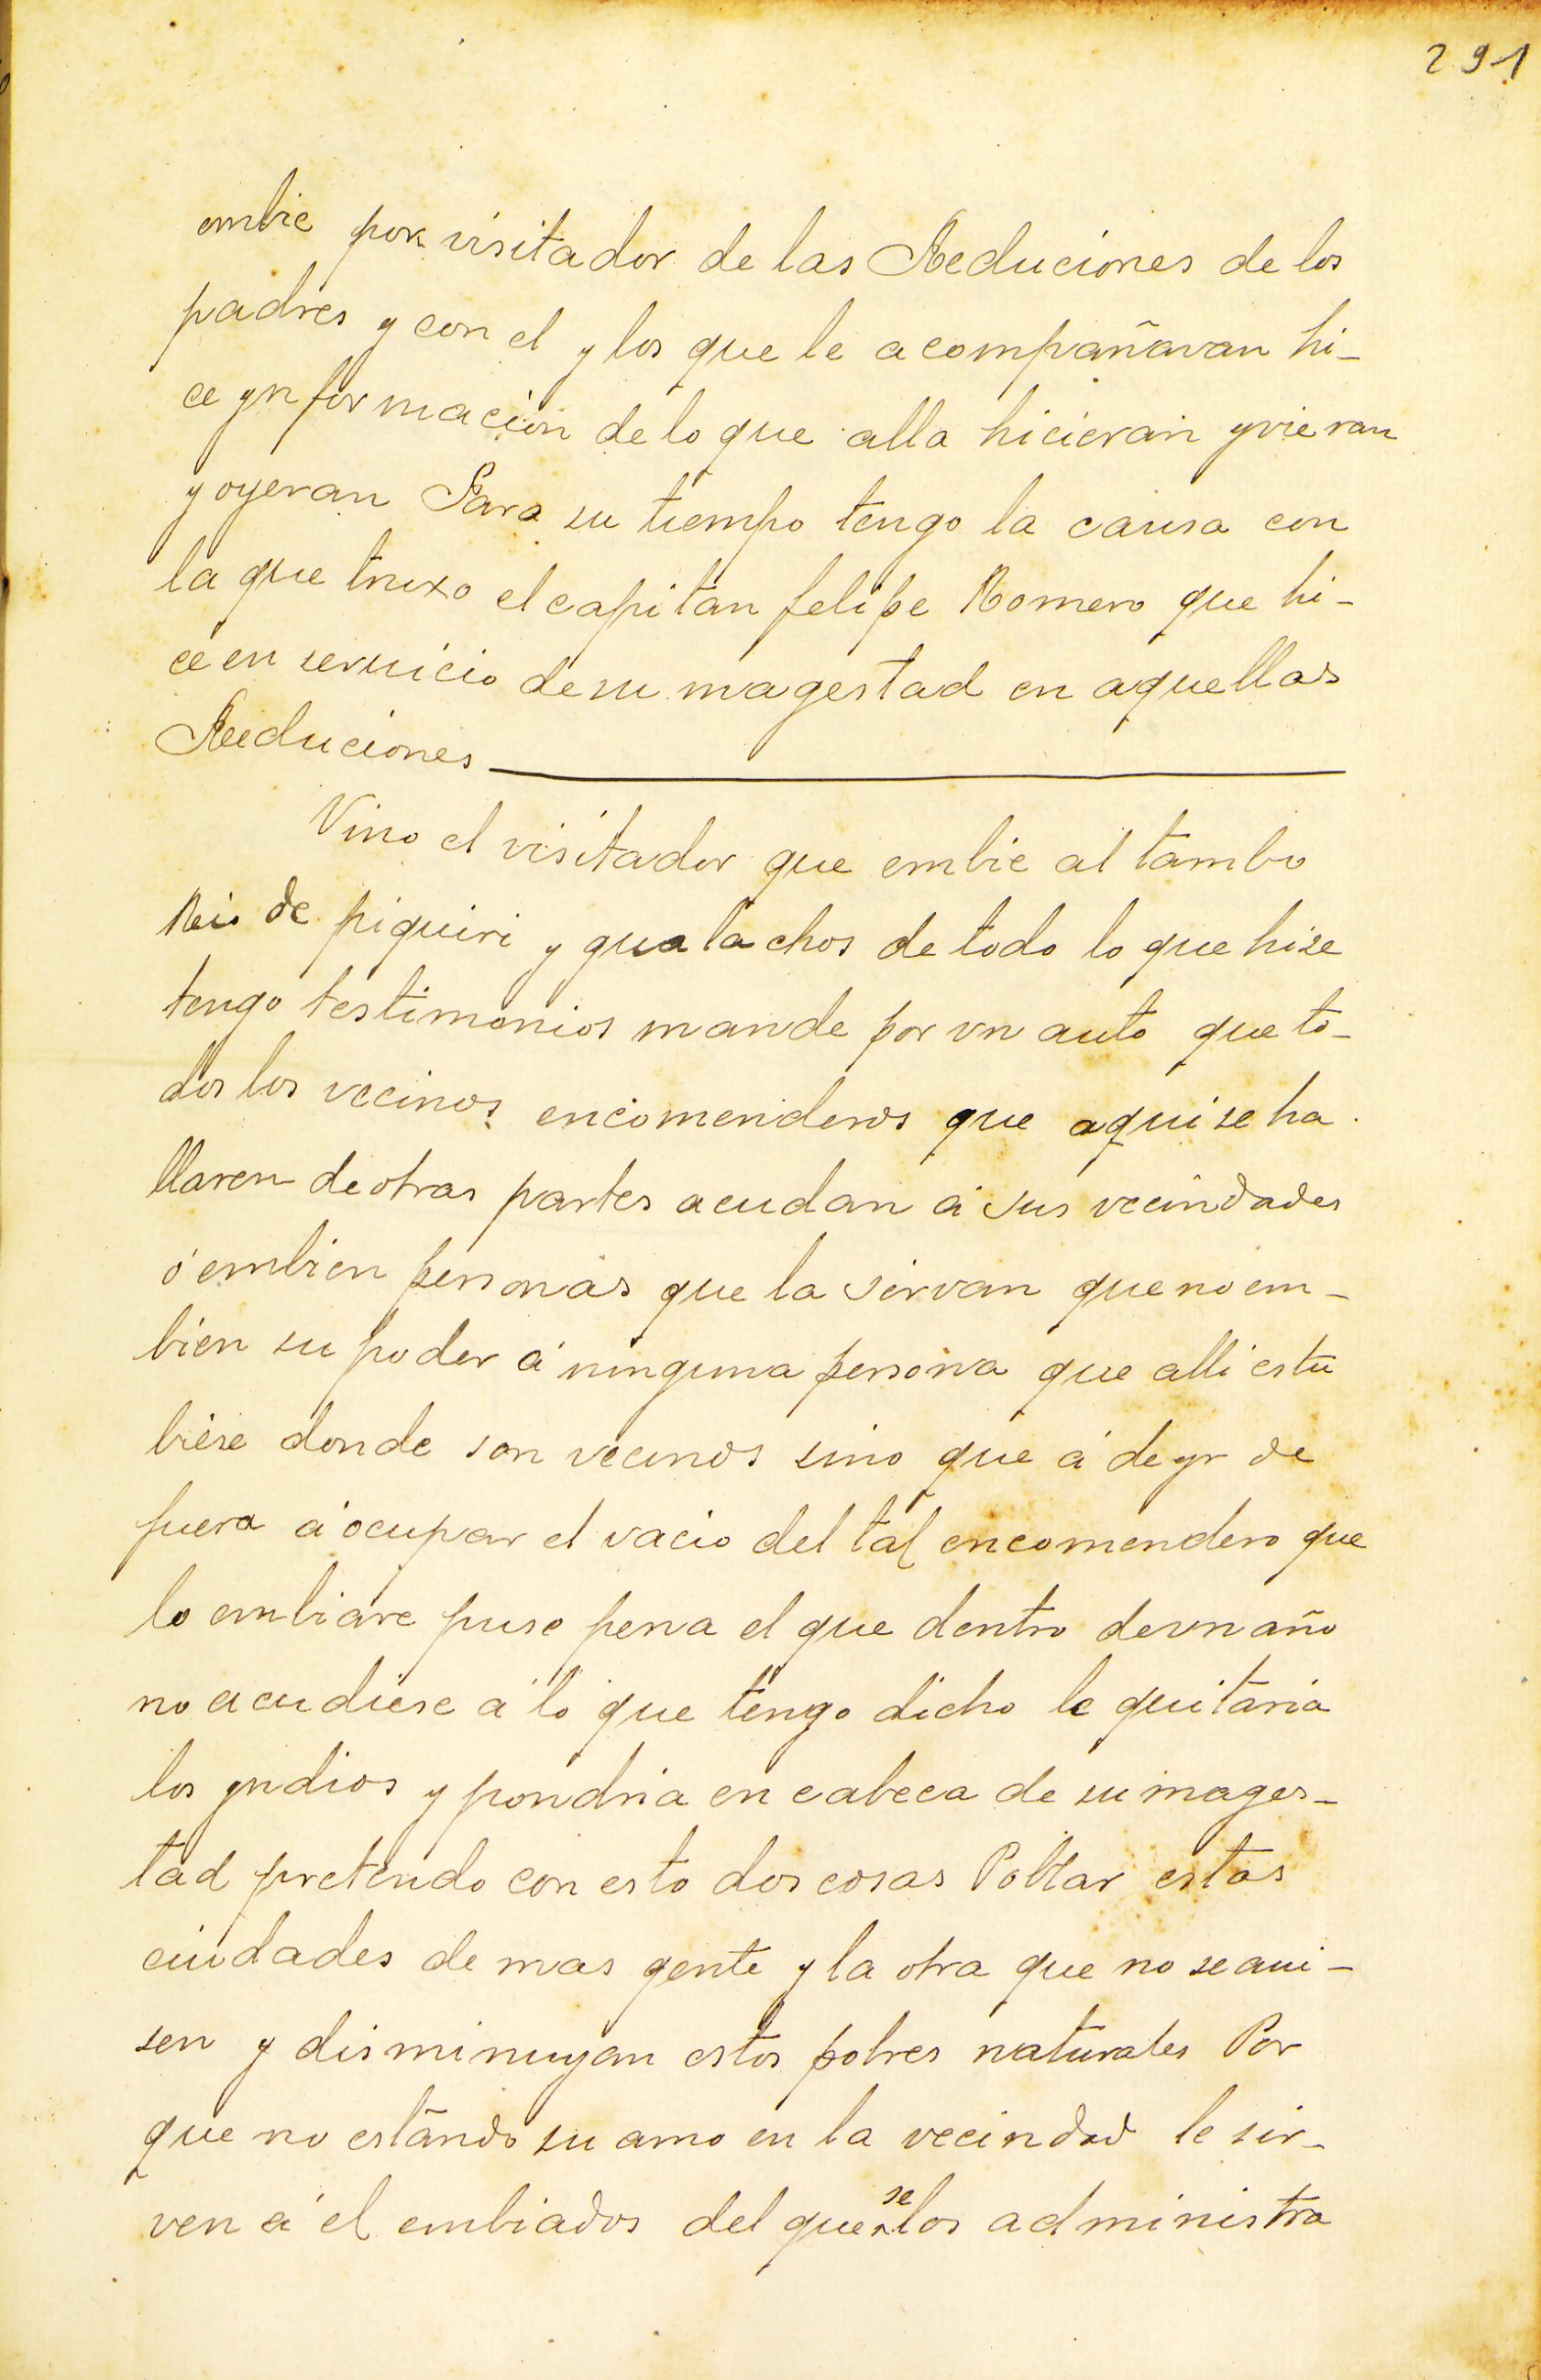 291
embie por visitador de las Reduciones de los
padres y con el y los que le acompañavan hi-
ce ynformación de lo que alla hicieran y vieran
y oyeran Para su tiempo tengo la causa con
la que truxo el capitan felipe Romero que hi-
ce en seruicio de su magestad en aquellas
Reduciones
Vino el visitador que embie al tambo
Rio de piquiri y gualachos de todo lo que hize
tengo testimonios mande por vn auto que to-
dos los vecinos encomenderos que aqui se ha
llaren de otras partes acudan á sus vecindades
ó embien personas que la sirvan que no em-
bien su poder á ninguna persona que alli estu
biese donde son vecinos sino que á de yr de
fuera á ocupar el vacio del tal encomendero que
lo embiare puse pena el que dentro de vn año
no acudiese á lo que tengo dicho le quitaria
los yndios y pondria en cabeca de su mages-
tad pretendo con esto dos cosas Poblar estas
ciudades de mas gente y la otra que no se aui-
sen y disminuyan estos pobres naturales Por
que no estando su amo en la vecindad le sir-
ven á el embiados del que se los administra